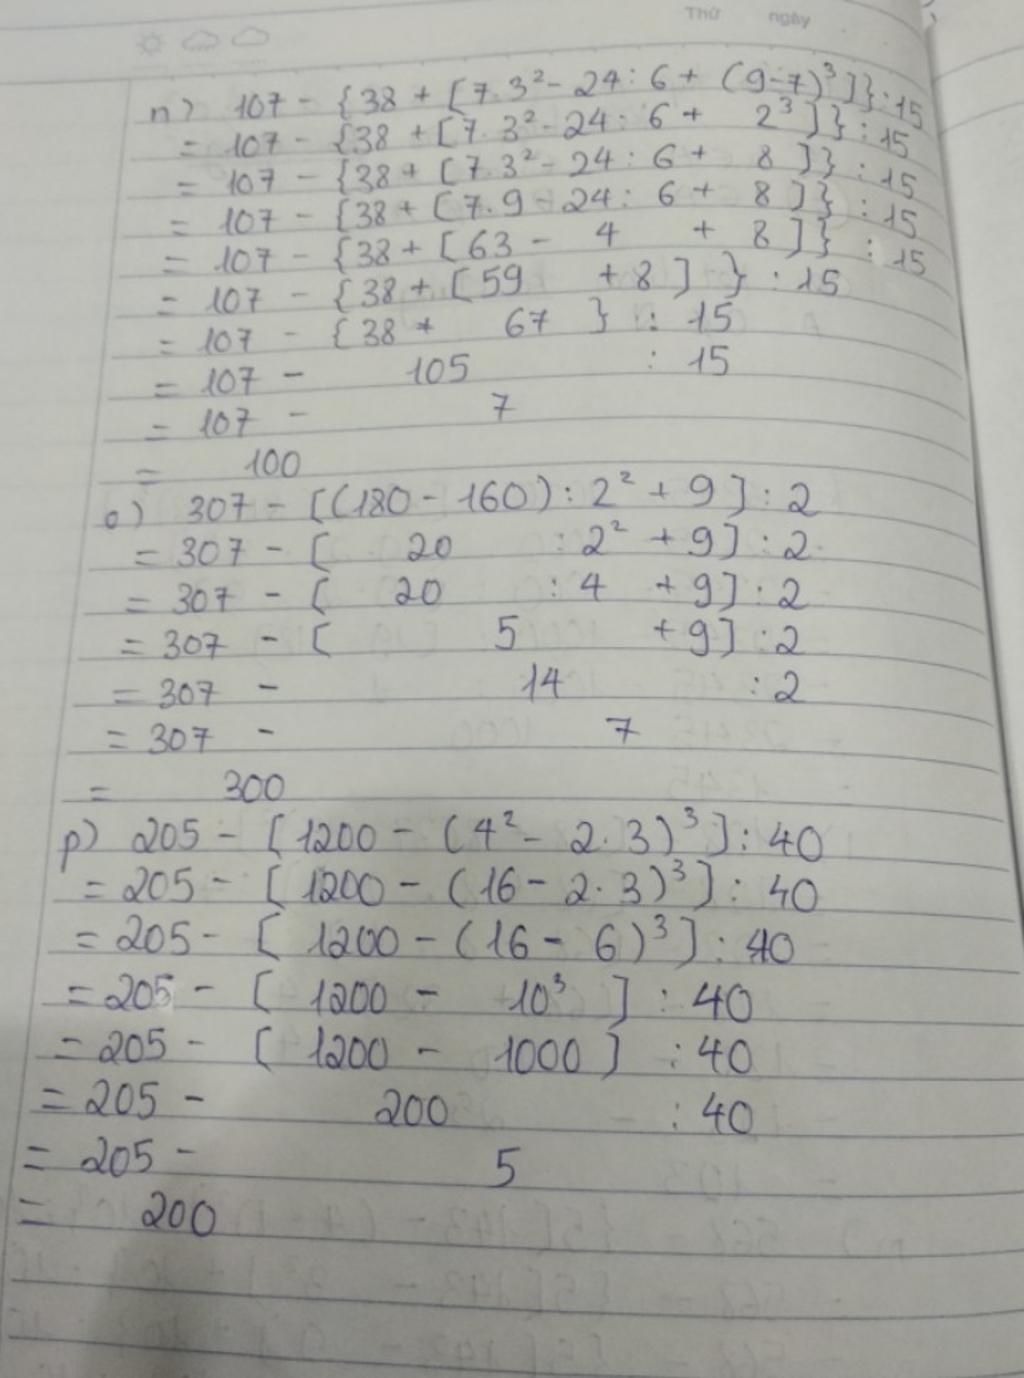 Thứ ngày
n) 107 - {38 + [7.3² - 24 : 6 + (9-7)³]} : 15
= 107 - {38 + [7.3² - 24 : 6 + 2³]} : 15
= 107 - {38 + [7.3² - 24 : 6 + 8]} : 15
= 107 - {38 + [7.9 - 24 : 6 + 8]} : 15
= 107 - {38 + [63 - 4 + 8]} : 15
= 107 - {38 + [59 + 8]} : 15
= 107 - {38 + 67} : 15
= 107 - 105 : 15
= 107 - 7
= 100
o) 307 - [(180 - 160) : 2² + 9] : 2
= 307 - [ 20 : 2² + 9] : 2
= 307 - [ 20 : 4 + 9] : 2
= 307 - [ 5 + 9] : 2
= 307 - 14 : 2
= 307 - 7
= 300
p) 205 - [1200 - (4² - 2.3)³] : 40
= 205 - [1200 - (16 - 2.3)³] : 40
= 205 - [1200 - (16 - 6)³] : 40
= 205 - [1200 - 10³] : 40
= 205 - [1200 - 1000] : 40
= 205 - 200 : 40
= 205 - 5
= 200